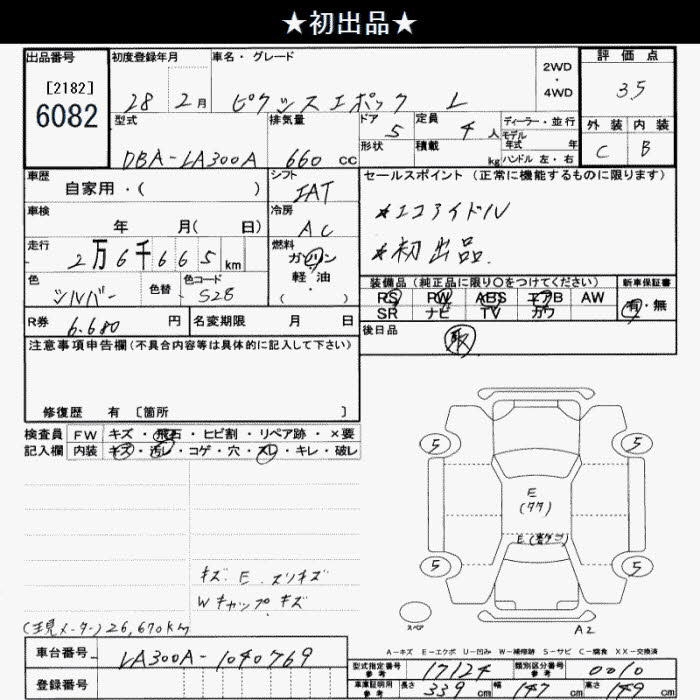 ★初出品★
出品番号 初度登録年月 車名・グレード 2WD・4WD 評価点
[2182]
6082
28 2月 ピクシスエポック L 3.5
型式 排気量 ドア 定員 ディーラー・並行 外装 内装
DBA-LA300A 660 cc 5 4人 モデル年式 年 C B
形状 積載 kg ハンドル 左・右
車歴 シフト セールスポイント(正常に機能するものに限ります)
自家用・( ) IAT
*エコアイドル
車検 冷房
年 月( 日) AC
*初出品.
走行 燃料
2万6千665km ガソリン
軽・油
( )
色 色替 色コード
シルバー S28
装備品(純正品に限り○をつけてください) 新車保証書
PS PW ABS エアB AW 有・無
SR ナビ TV カワ
R券 6.680円 名変期限 月 日
後日品 取
注意事項申告欄(不具合内容等は具体的に記入して下さい)
修復歴 有 [箇所 ]
検査員 FW キズ・飛石・ヒビ割・リペア跡・×要
記入欄 内装 キズ・汚レ・コゲ・穴・スレ・キレ・破レ
5 5
E
(ワワ)
5 5
キズ E スリキズ
Wキャップキズ
スペア
A2
(現メーター)26,670km
A-キズ E-エクボ U-凹み W-補修跡 S-サビ C-腐食 XX-交換済
車台番号 LA300A-1040769
型式指定番号 参考 17124 類別区分番号 参考 0010
登録番号
車庫証明用 参考 長さ 339cm 幅 147cm 高さ 149cm